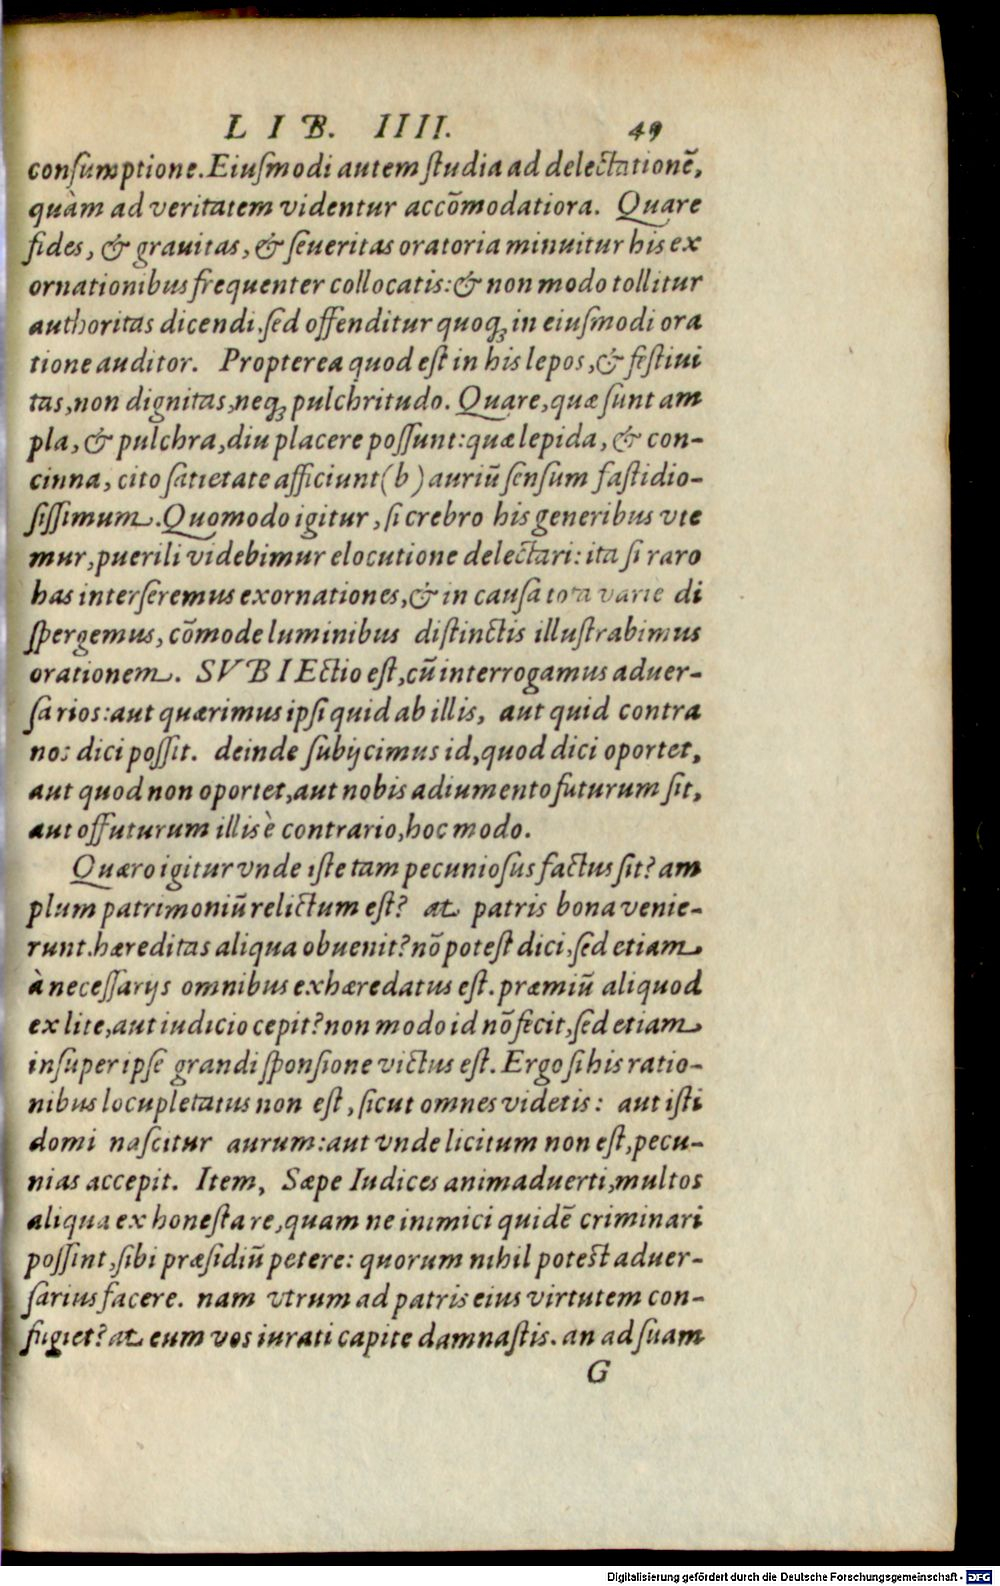 LIB. IIII. 49
consumptione. Eiusmodi autem studia ad delectationē,
quàm ad veritatem videntur accōmodatiora. Quare
fides, & grauitas, & seueritas oratoria minuitur his ex
ornationibus frequenter collocatis: & non modo tollitur
authoritas dicendi, sed offenditur quoq; in eiusmodi ora
tione auditor. Propterea quod est in his lepos, & festiui
tas, non dignitas, neq; pulchritudo. Quare, quæ sunt am
pla, & pulchra, diu placere possunt: quæ lepida, & con-
cinna, cito satietate afficiunt (b) auriū sensum fastidio-
sissimum. Quomodo igitur, si crebro his generibus vte
mur, puerili videbimur elocutione delectari: ita si raro
has interseremus exornationes, & in causa tota varie di
spergemus, cōmode luminibus distinctis illustrabimus
orationem. SVBIEctio est, cū interrogamus aduer-
sarios: aut quærimus ipsi quid ab illis, aut quid contra
nos dici possit. deinde subijcimus id, quod dici oportet,
aut quod non oportet, aut nobis adiumento futurum sit,
aut offuturum illis è contrario, hoc modo.
Quæro igitur vnde iste tam pecuniosus factus sit? am
plum patrimoniū relictum est? at patris bona venie-
runt. hæreditas aliqua obuenit? nō potest dici, sed etiam
à necessarijs omnibus exhæredatus est. præmiū aliquod
ex lite, aut iudicio cepit? non modo id nō fecit, sed etiam
insuper ipse grandi sponsione victus est. Ergo si his ratio-
nibus locupletatus non est, sicut omnes videtis: aut isti
domi nascitur aurum: aut vnde licitum non est, pecu-
nias accepit. Item, Sæpe Iudices animaduerti, multos
aliqua ex honesta re, quam ne inimici quidē criminari
possint, sibi præsidiū petere: quorum nihil potest aduer-
sarius facere. nam vtrum ad patris eius virtutem con-
fugiet? at eum vos iurati capite damnastis. an ad suam
G
Digitalisierung gefördert durch die Deutsche Forschungsgemeinschaft - DFG